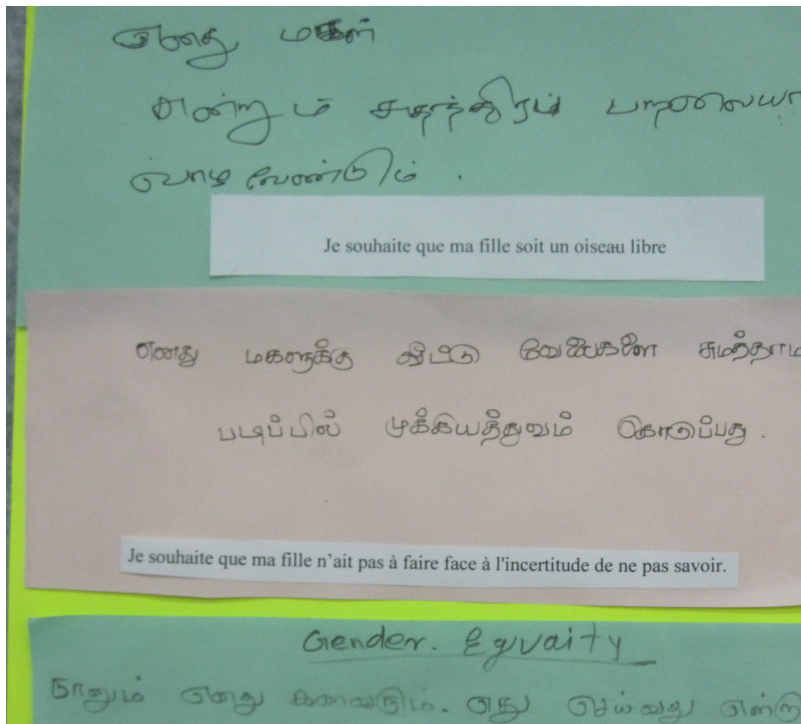 எனது மகள்
என்றும் சுதந்திரப் பறவையா
வாழ வேண்டும்.
Je souhaite que ma fille soit un oiseau libre
எனது மகளுக்கு வீட்டு வேலைகளை சுமத்தாம
படிப்பில் முக்கியத்துவம் கொடுப்பது.
Je souhaite que ma fille n'ait pas à faire face à l'incertitude de ne pas savoir.
Gender. Eqvaity
நானும் எனது கணவரும். எது செய்வது என்று